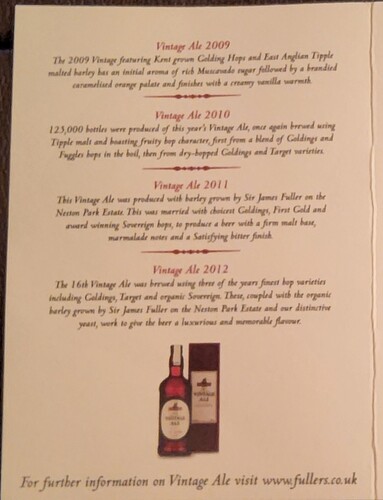 Vintage Ale 2009
The 2009 Vintage featuring Kent grown Golding Hops and East Anglian Tipple
malted barley has an initial aroma of rich Muscavado sugar followed by a brandied
caramelised orange palate and finishes with a creamy vanilla warmth.
Vintage Ale 2010
125,000 bottles were produced of this year's Vintage Ale, once again brewed using
Tipple malt and boasting fruity hop character, first from a blend of Goldings and
Fuggles hops in the boil, then from dry-hopped Goldings and Target varieties.
Vintage Ale 2011
This Vintage Ale was produced with barley grown by Sir James Fuller on the
Neston Park Estate. This was married with choicest Goldings, First Gold and
award winning Sovereign hops, to produce a beer with a firm malt base,
marmalade notes and a Satisfying bitter finish.
Vintage Ale 2012
The 16th Vintage Ale was brewed using three of the years finest hop varieties
including Goldings, Target and organic Sovereign. These, coupled with the organic
barley grown by Sir James Fuller on the Neston Park Estate and our distinctive
yeast, work to give the beer a luxurious and memorable flavour.
VINTAGE
ALE
VINTAGE
ALE
For further information on Vintage Ale visit www.fullers.co.uk